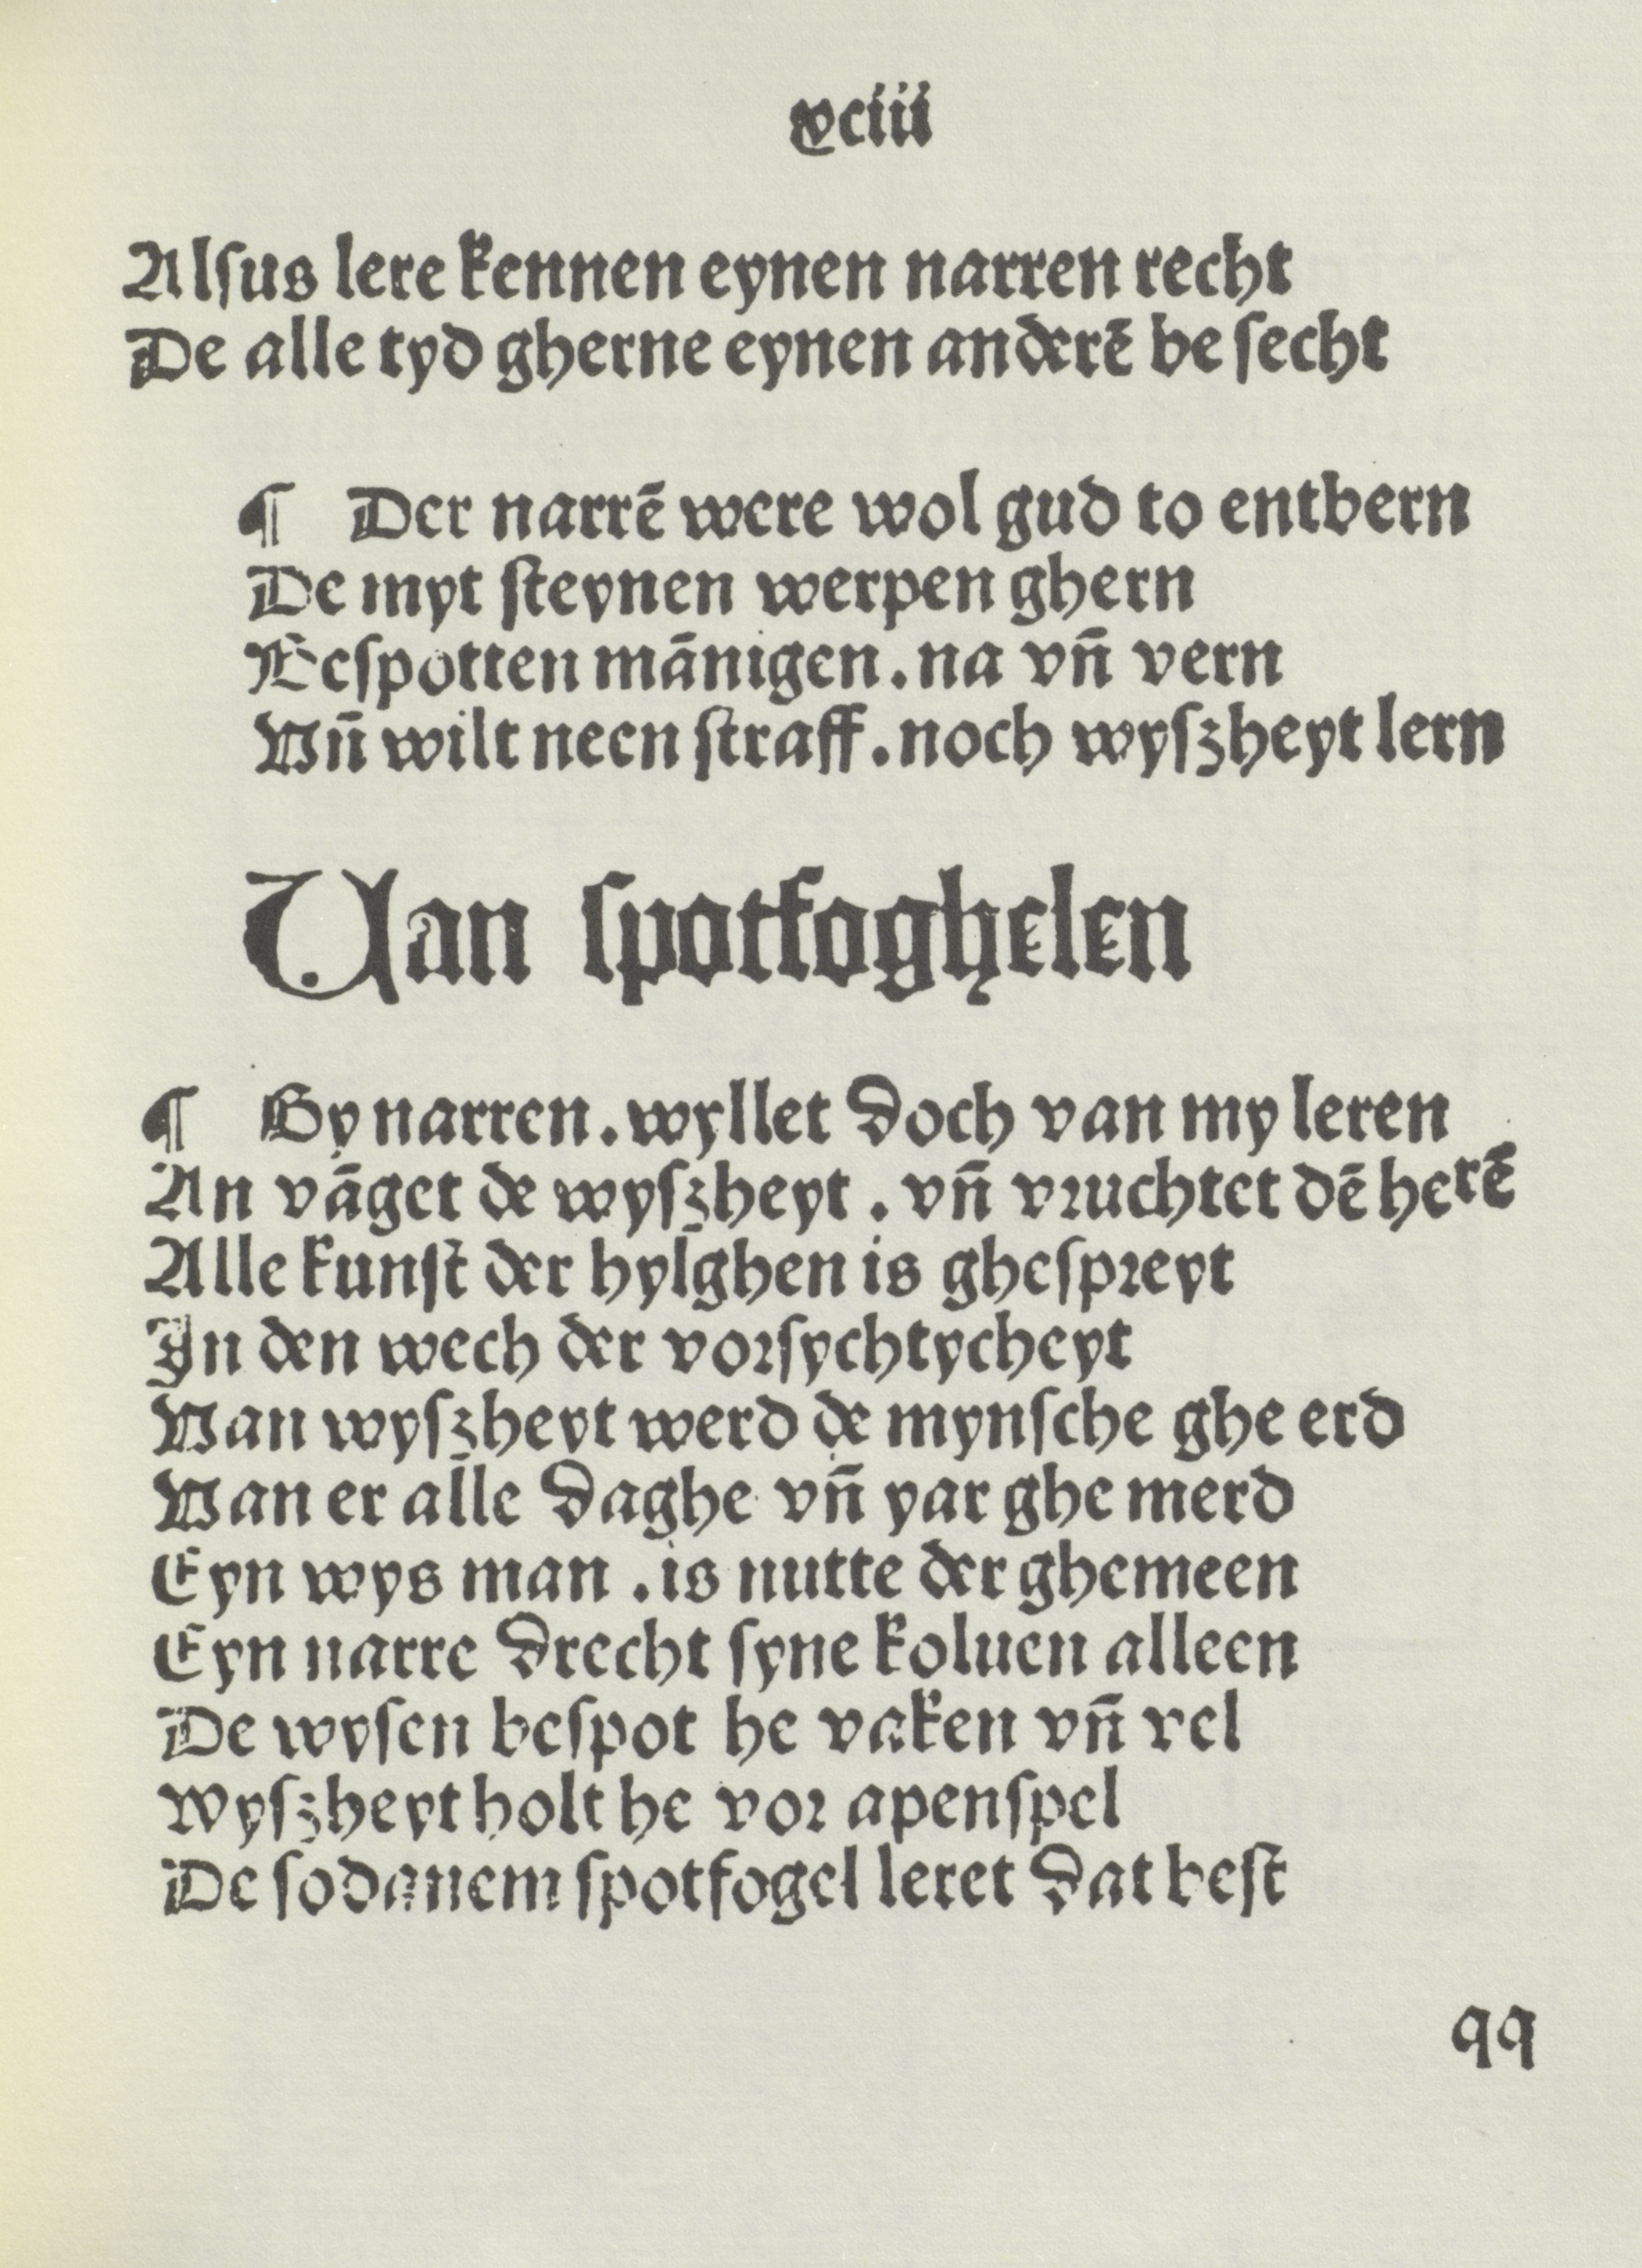 xciii
Alſus lere kennen eynen narren recht
De alle tyd gherne eynen anderē be ſecht
¶ Der narrē were wol gud to entbern
De myt ſteynen werpen ghern
Beſpotten mānigen . na vn̄ vern
Vn̄ wilt neen ſtraff . noch wyſzheyt lern
Van ſpotfoghelen
¶ Gy narren . wyllet doch van my leren
An vāget de wyſzheyt . vn̄ vꝛuchtet dē herē
Alle kunſt der hylghen is gheſpꝛeyt
In den wech der voꝛſychtycheyt
Van wyſzheyt werd de mynſche ghe erd
Van er alle daghe vn̄ yar ghe merd
Eyn wys man . is nutte der ghemeen
Eyn narre drecht ſyne koluen alleen
De wyſen beſpot he vaken vn̄ vel
Wyſzheyt holt he voꝛ apenſpel
De ſodanem ſpotfogel leret dat beſt
qq